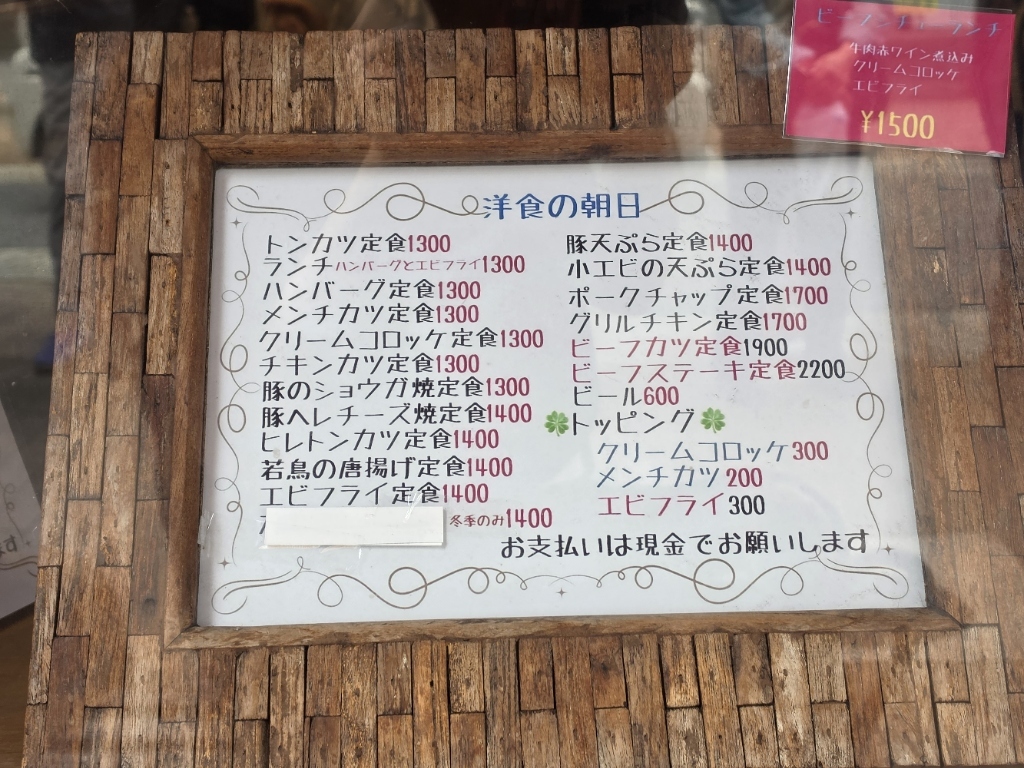 洋食の朝日
トンカツ定食1300
ランチハンバーグとエビフライ1300
ハンバーグ定食1300
メンチカツ定食1300
クリームコロッケ定食1300
チキンカツ定食1300
豚のショウガ焼定食1300
豚ヘレチーズ焼定食1400
ヒレトンカツ定食1400
若鳥の唐揚げ定食1400
エビフライ定食1400
冬季のみ1400
豚天ぷら定食1400
小エビの天ぷら定食1400
ポークチャップ定食1700
グリルチキン定食1700
ビーフカツ定食1900
ビーフステーキ定食2200
ビール600
トッピング
クリームコロッケ300
メンチカツ200
エビフライ300
お支払いは現金でお願いします
ビーフシチューランチ
牛肉赤ワイン煮込み
クリームコロッケ
エビフライ
¥1500